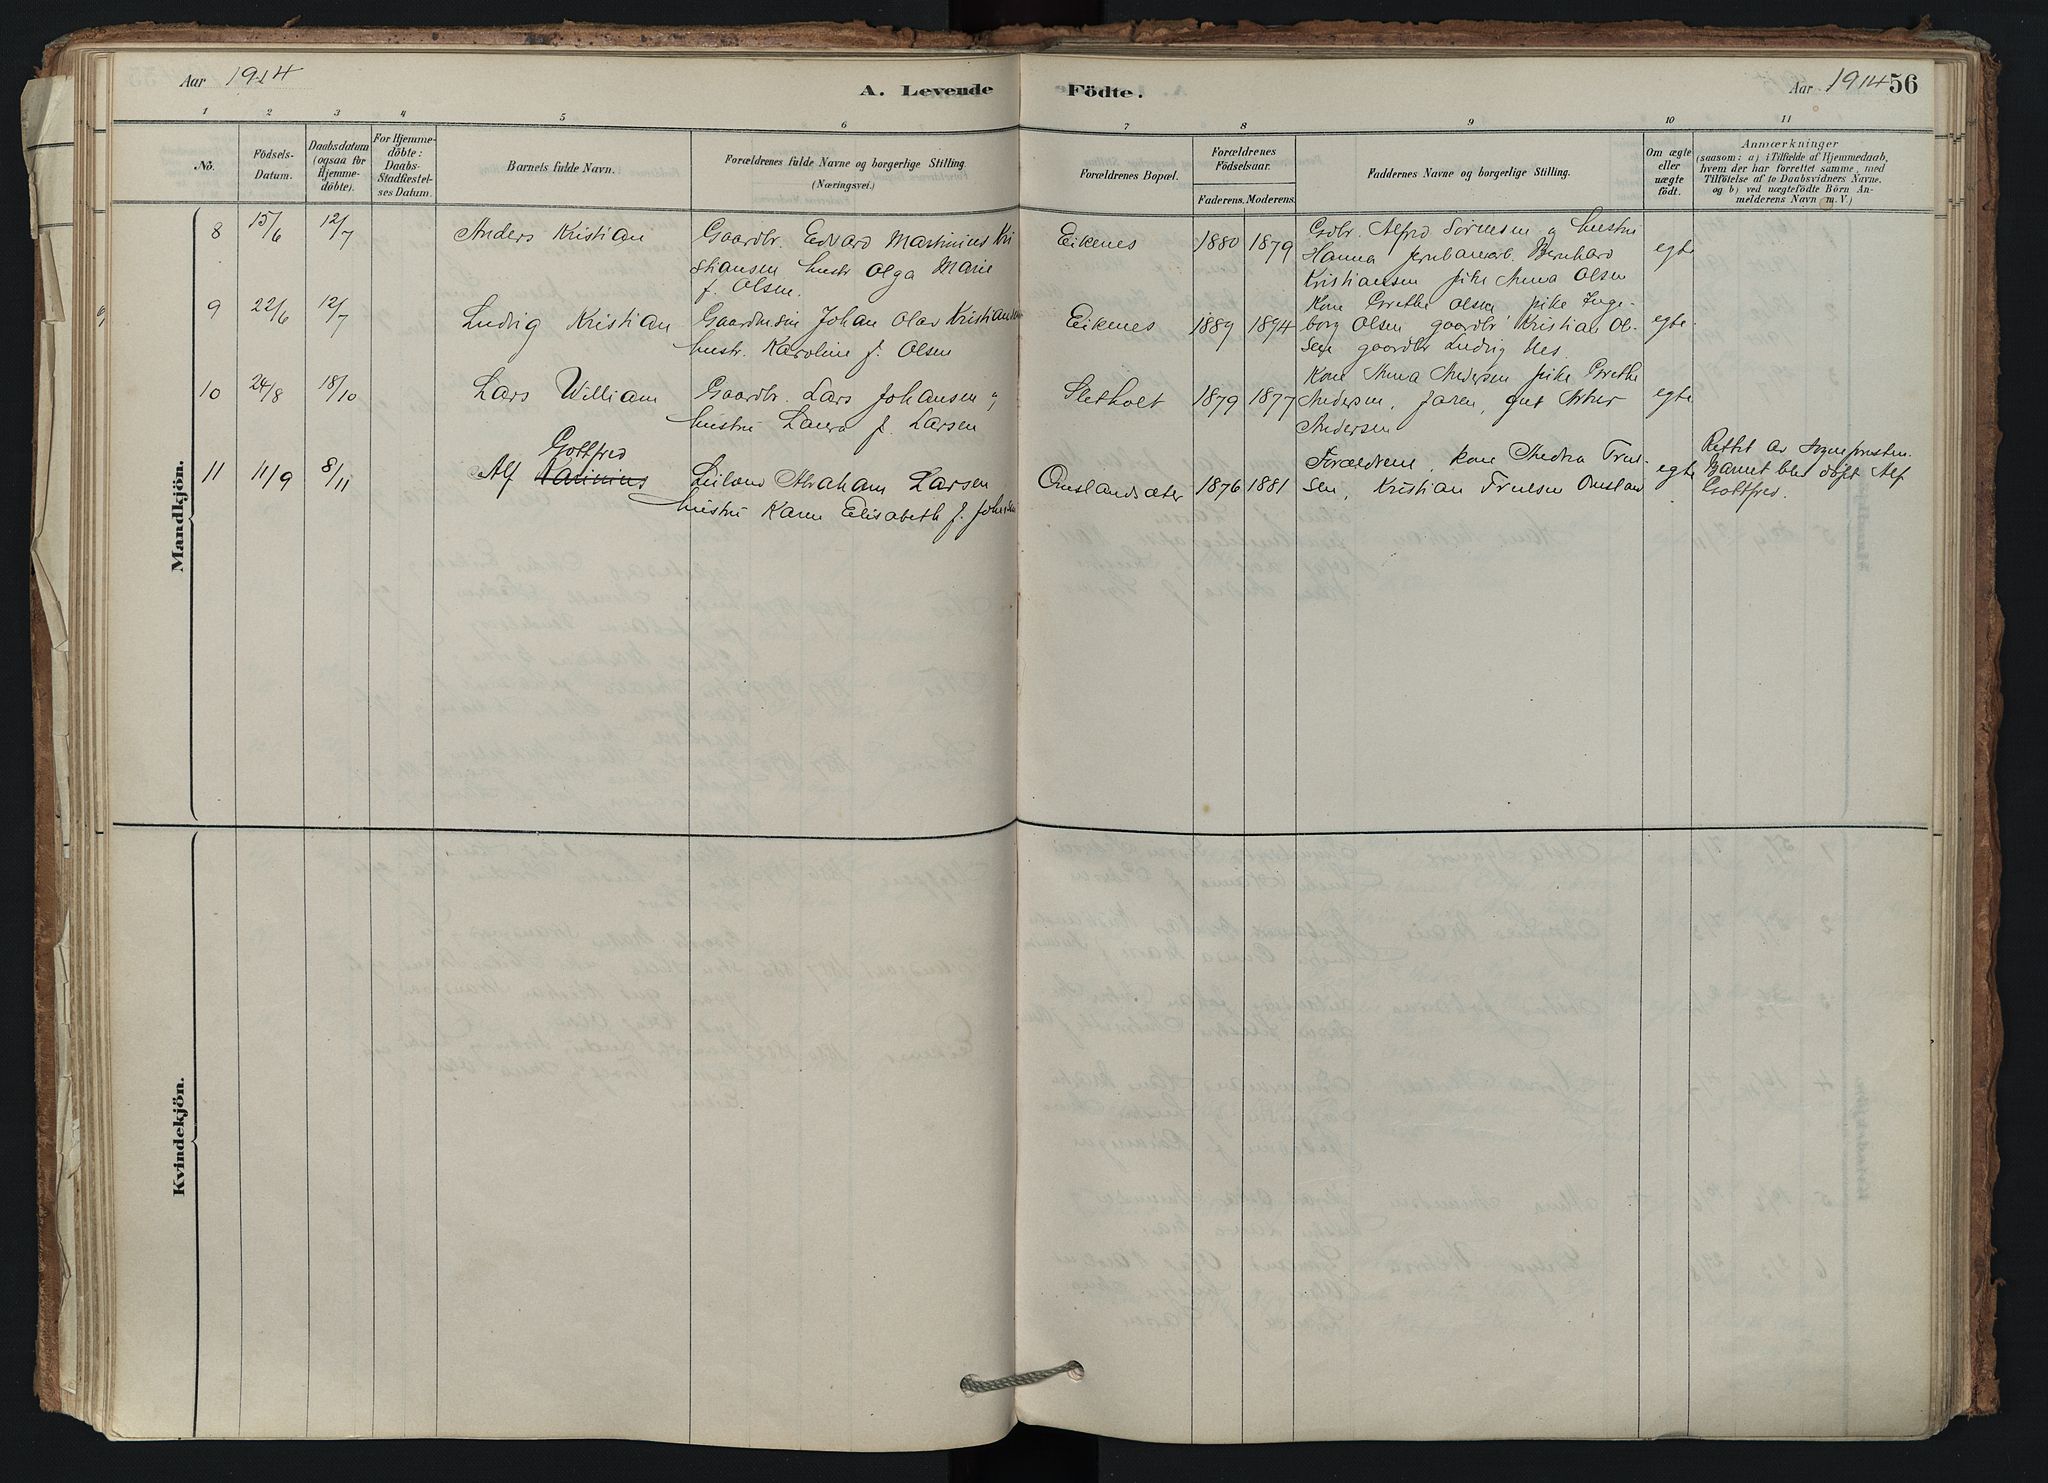 Aar 1914
A. Levende
Födte.
Aar 1914 56
1 2 3 4 5 6 7 8 9 10 11
No.
Födsels-
Datum.
Daabsdatum
(ogsaa for
Hjemme-
döbte).
For Hjemme-
döbte:
Daabs-
Stadfæstel-
ses Datum.
Barnets fulde Navn.
Forældrenes fulde Navne og borgerlige Stilling.
(Næringsvei.)
Forældrenes Bopæl.
Forældrenes
Födselsaar.
Faderens. Moderens.
Faddernes Navne og borgerlige Stilling.
Om ægte
eller
uægte
födt.
Anmærkninger
(saasom: a) i Tilfælde af Hjemmedaab,
hvem der har forrettet samme, med
Tilföielse af to Daabsvidners Navne,
og b) ved uægtefödte Börn An-
melderens Navn m. V.)
Mandkjön.
8 15/6 12/7
Anders Kristian
Gaardbr. Edvard Martinius Kri
stiansen hustr Olga Marie
f. Olsen.
Eikenes 1880 1879
Gdbr. Alfred Sørensen og hustru
Hanna jernbanearb. Bernhard
Kristiansen pike Anna Olsen
egte
9 22/6 12/7
Ludvig Kristian
Johan Olav Kristiansen
hustr. Karoline f. Olsen
Eikenes 1889 1894
Kone Grethe Olsen pike Inge-
borg Olsen gaardbr Kristian Ol-
sen gaardbr Ludvig Nes.
egte
10 24/8 18/10
Lars William
Gaardbr. Lars Johansen og
hustru Laura f. Larsen
Sletholt 1879 1877
Kone Anna Andersen pike Grethe
Andersen, faren, gut
Andersen
egte
11 11/9 8/11
Gottfred
Alf
Leilend Abraham Larsen
hustru Karen Elisabeth f. Johnsen
Omslandsæter 1876 1881
Forældrene, kone Andrea Trul-
sen, Kristian Trulsen Omsland
egte
Rettet av sognepresten.
Barnet blev døft Alf
Gottfred.
Kvindekjön.